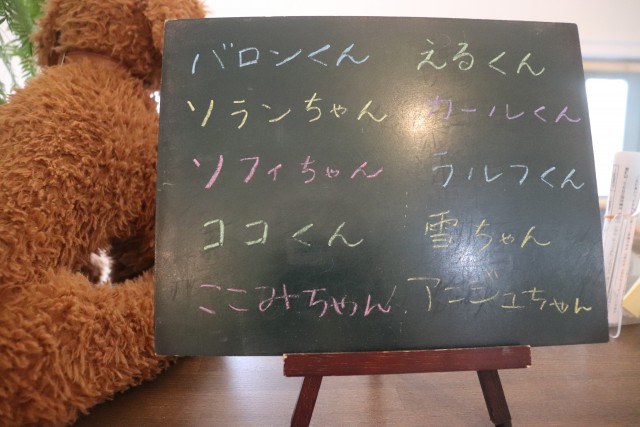 バロンくん えるくん
ソランちゃん カールくん
ソフィちゃん ラルフくん
ココくん 雪ちゃん
ここみちゃん アンジュちゃん